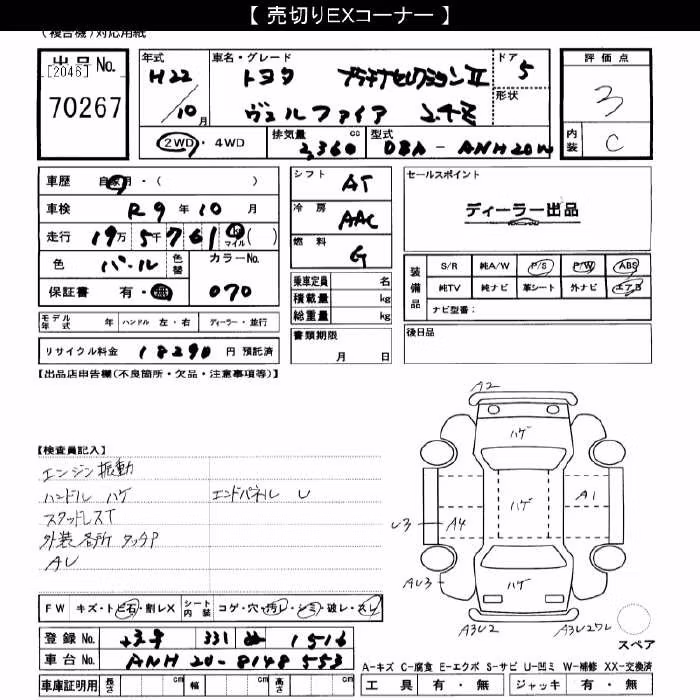 【 売切りEXコーナー 】
(複合機)対応用紙
出品 No.
[2046]
70267
年式
H22
/10月
車名・グレード
トヨタ プラチナセレクションⅡ
ヴェルファイア 2.4Z
ドア
5
形状
2WD・4WD
排気量
2,360 cc
型式
DBA - ANH20W
評価点
3
内装
C
車歴 自家用・( )
車検 R9年10月
走行 19万5千761km マイル( )
色 パール 色替
カラーNo.
070
保証書 有・無
モデル年式 年 ハンドル 左・右 ディーラー・並行
リサイクル料金 18290 円 預託済
シフト AT
冷房 AAC
燃料 G
乗車定員 名
積載量 kg
総重量 kg
書類期限
月 日
セールスポイント
ディーラー出品
装備品
S/R 純A/W P/S P/W ABS
純TV 純ナビ 革シート 外ナビ エアB
ナビ型番:
後日品
【出品店申告欄(不良箇所・欠品・注意事項等)】
【検査員記入】
エンジン振動
ハンドル ハゲ エンドパネル U
スタッドレスT
外装各所タッチP
AU
A2
ハゲ
ハゲ
A1
U3
A4
AU3
ハゲ
A3U2
スペア
FW キズ・トビ石・割レX シート内装 コゲ・穴・汚レ・シミ・破レ・スレ
登録 No. 331 1516
車台 No. ANH 20-8148553
車庫証明用 長さ cm 幅 cm 高さ cm
A-キズ C-腐食 E-エクボ S-サビ U-凹ミ W-補修 XX-交換済
工具 有・無 ジャッキ 有・無